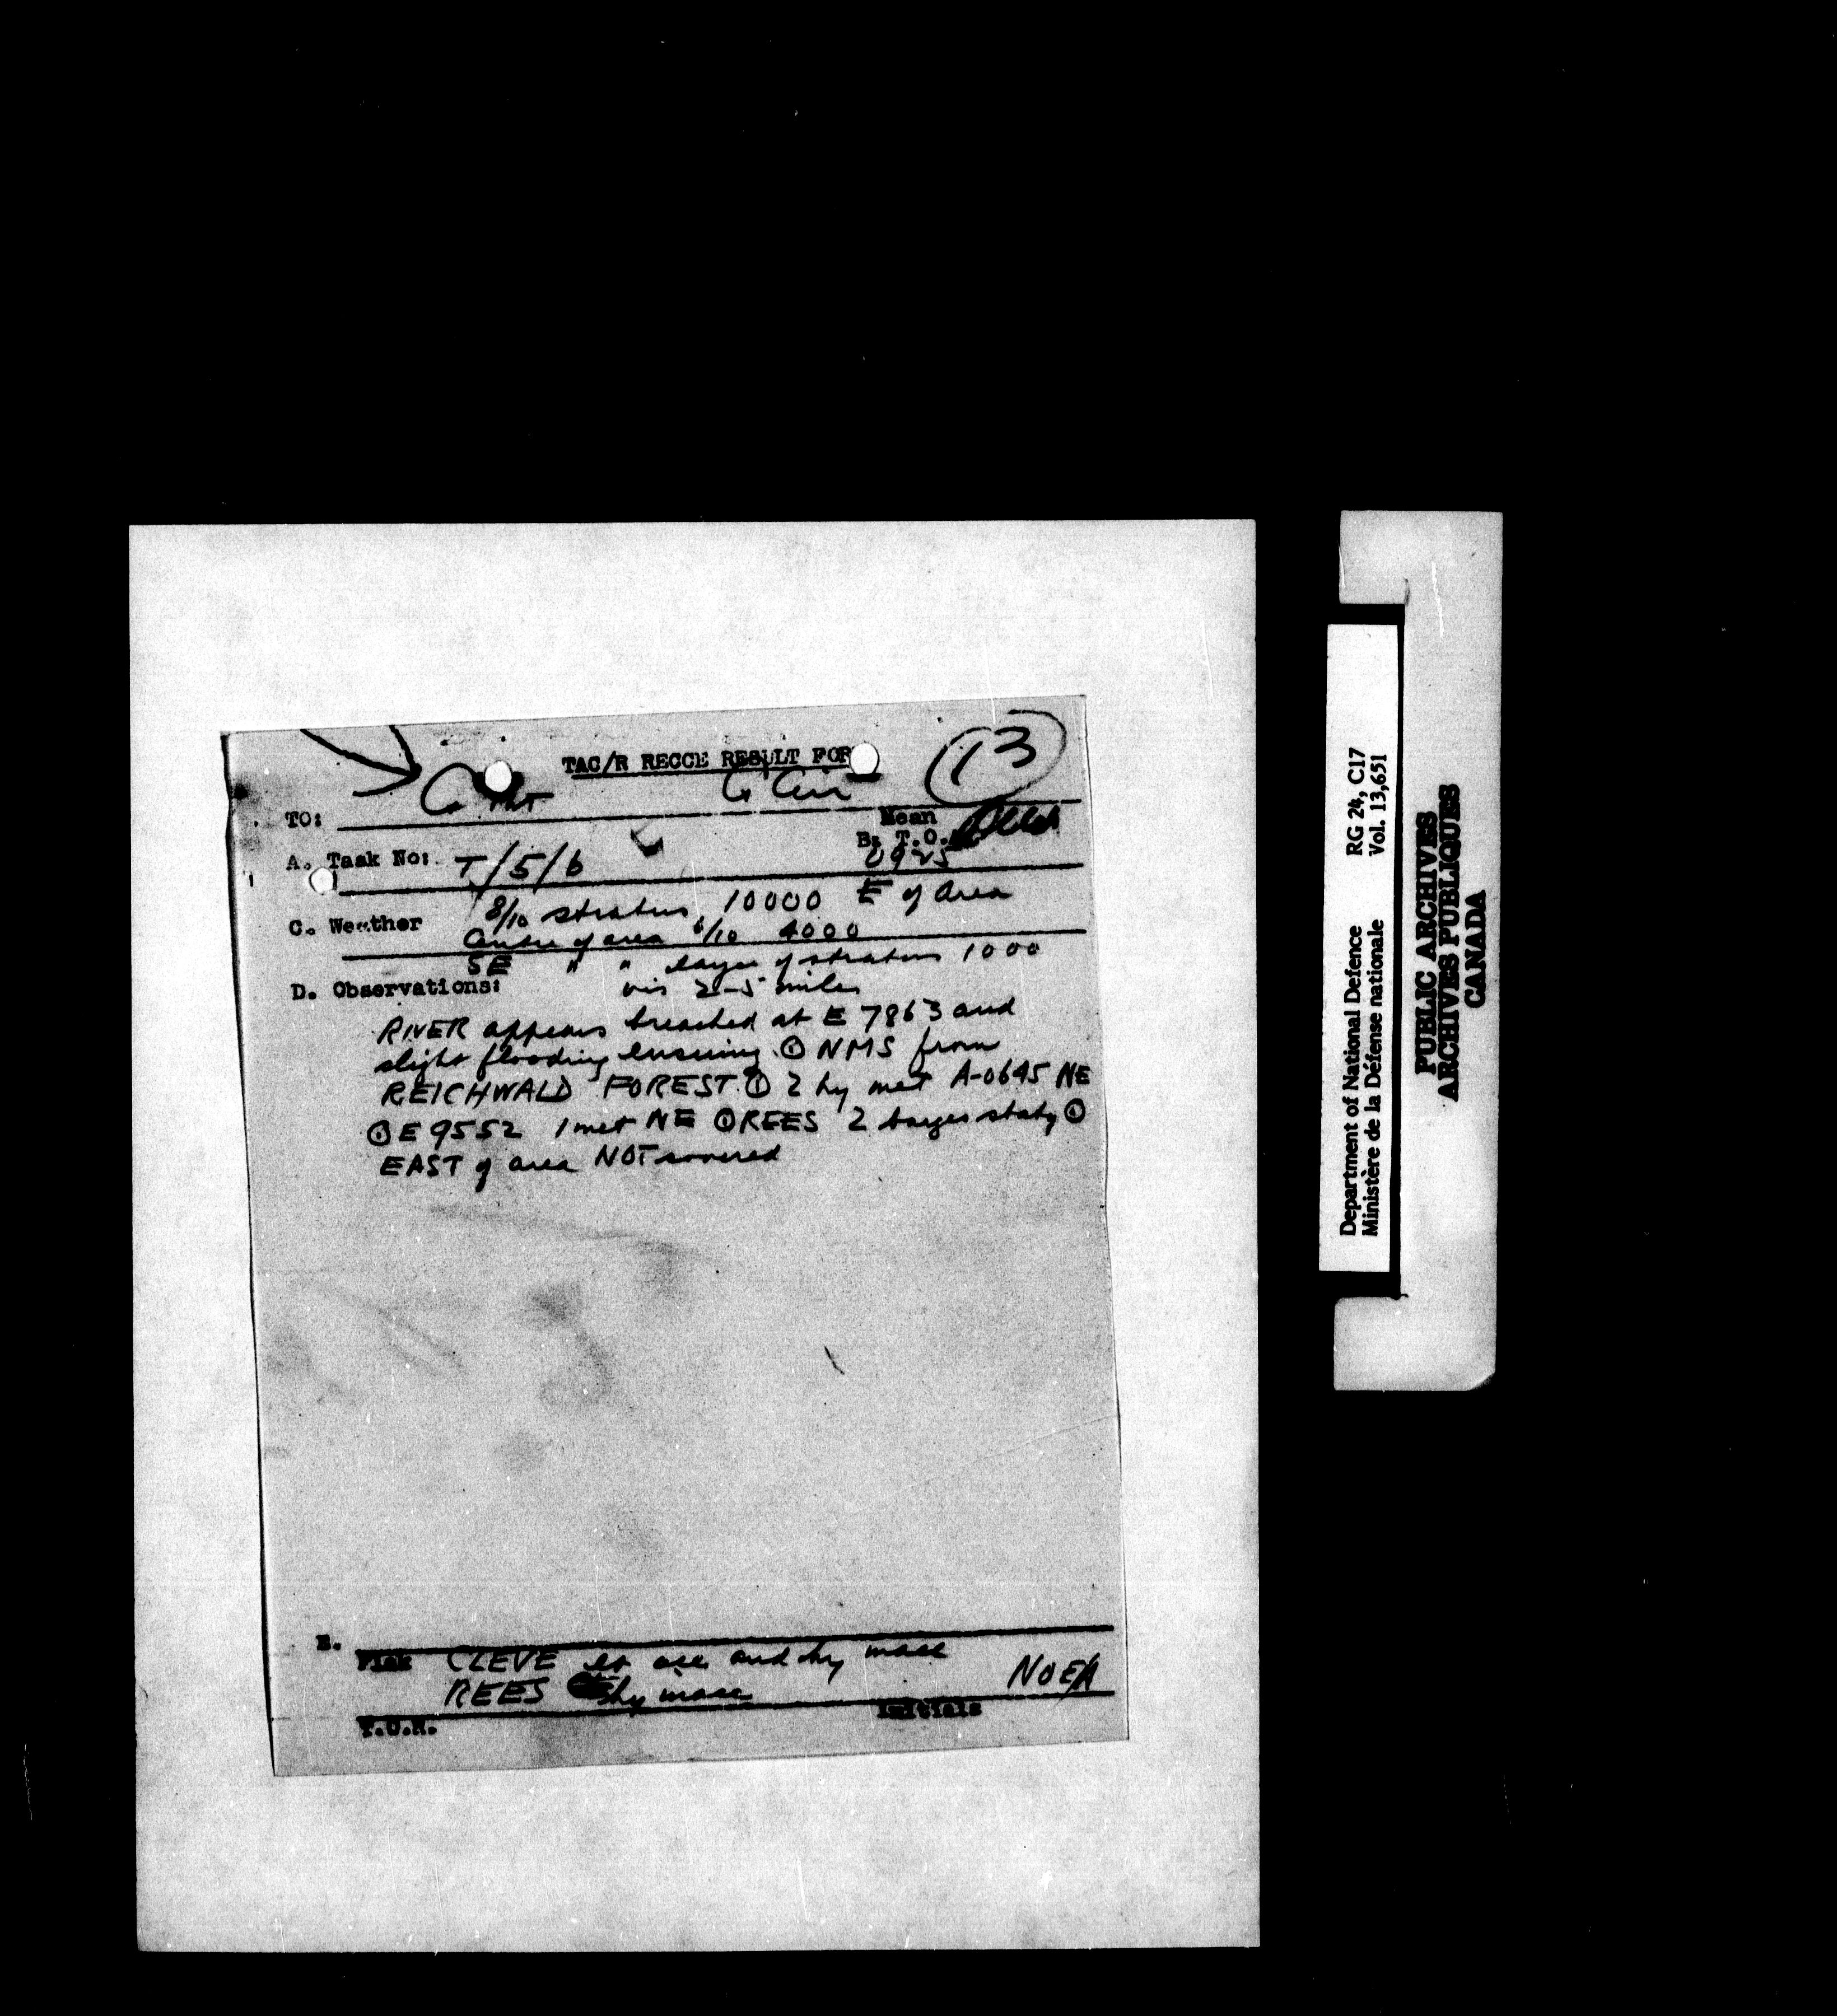 TAC/R RECCE RESULT FOR
13
G Int G Air
TO:
Mean
B. T.O.
A. Task No: T/5/6 0925
C. Weather 8/10 stratus 10000 E of area
Centre of area 6/10 4000
SE " " layer of stratus 1000
D. Observations: vis 2-5 miles
RIVER appears breached at E 7863 and
slight flooding ensuing. ① NMS from
REICHWALD FOREST. ① 2 hy met A-0645 NE
① E 9552 1 met NE ① REES 2 barges staty ①
EAST of area NOT covered
E.
Flak CLEVE lt acc and hy inacc
REES hy inacc NO E/A
T.O.R. Initials
Department of National Defence RG 24, C17
Ministère de la Défense nationale Vol. 13,651
PUBLIC ARCHIVES
ARCHIVES PUBLIQUES
CANADA